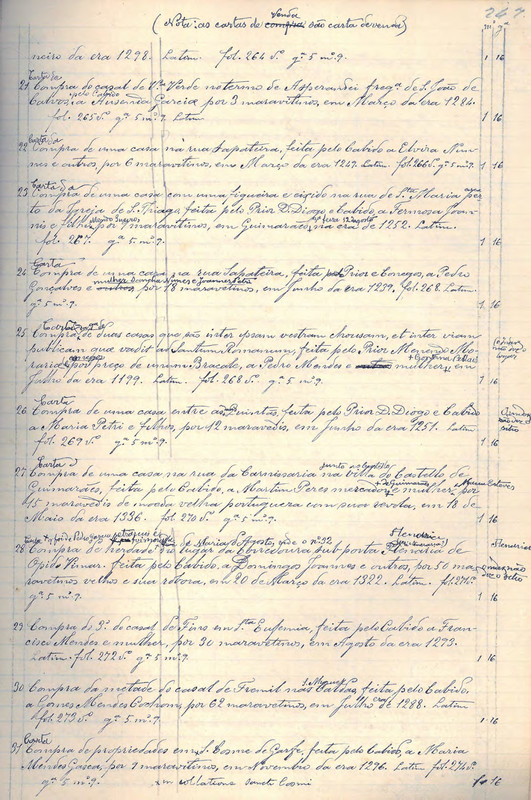 247
Venda
(Nota: as cartas de compra são carta de venda)
neiro da era 1298. Latim. fol. 264 vº. gª 5 mº 9. 1 16
Carta de
21 Compra do casal de Vª Verde no termo de freg.ª de S. João de
pelo Cabido
Calvos, a Ausenda Garcia por 3 maravitinos, em Março da era 1284.
fol. 265 vº gª 5 mº 9. Latim 1 16
Carta da
22 Compra de uma casa na rua Sapateira, feita pelo Cabido a Elvira Nun-
nis e outros, por 6 maravitinos, em Março da era 1247. Latim. fol. 266 vº. gª 5 mº 9. 1 16
Carta da
23 Compra de uma casa com uma figueira e eixido na rua de Stª Maria per-
to da Igreja de S. Thiago, feita pelo Prior D. Diogo e Cabido, a Fermosa Joan-
nis e filhos, por 7 maravitinos, em Guimarães, na era de 1252. Latim.
fol. 267. gª 5 mº 9. 1 16
Carta
24 Compra de uma casa na rua Sapateira, feita pelo Prior e Conegos, a Pedro
Gonçalves e outros por 18 maravetinos, em Junho da era 1239, fol. 268. Latim
gª 5 mº 9. 1 16
25 Compra de duas casas que são inter ipsam vestram chousam, et inter viam
publicam qua vadit ad Sanctum Romanum, feita pelo Prior Menendo
por preço de unum Bracale, a Pedro Mendes e mulher, em
Junho da era 1199. Latim. fol. 268 vº. gª 5 mº 9. 1 16
Carta
26 Compra de uma casa entre as Quintãs, feita pelo Prior D. Diogo e Cabido
a Maria Petri e filhos, por 12 maravedis, em Junho da era 1251. Latim
fol. 269 vº gª 5 mº 9. 1 16
Carta d
27 Compra de uma casa na rua da Carnissaria na villa do Castello de
Guimarães, feita pelo Cabido, a Martim Peres mercador e mulher, por
45 maravedis de moeda velha portugueza com sua revora, em 18 de
Maio da era 1336. fol 270 vº gª 5 mº 9. 1 16
28 Compra de herdade no lugar da Corredoura sub porta Menaria de
Opido Vimar. feita pelo Cabido, a Domingos Joannes e outros, por 50 ma-
ravetinos velhos e sua rovora, em 20 de Março da era 1322. Latim. fol. 271 vº.
gª 5 mº 9.
29 Compra do 3º. do casal de Fins em Stª Eufemia, feita pelo Cabido a Fran-
cisco Mendes e mulher, por 30 maravetinos, em Agosto da era 1293.
Latim. fol. 272 vº gª 5 mº 9. 1 16
30 Compra da metade do casal de Fremil nas Caldas, feita pelo Cabido,
a Gomes Mendes por 62 maravetinos, em Julho de 1288. Latim
fol 273 vº gª 5 mº 9. 1 16
Carta
31 Compra de propriedades em S. Cosme de Garfe, feita pelo Cabido, a Maria
Mendes Gasca, por 7 maravetinos, em Novembro da era 1276. Latim fol. 274 vº.
gª 5 mº 9. sancti Cosmi 1 16